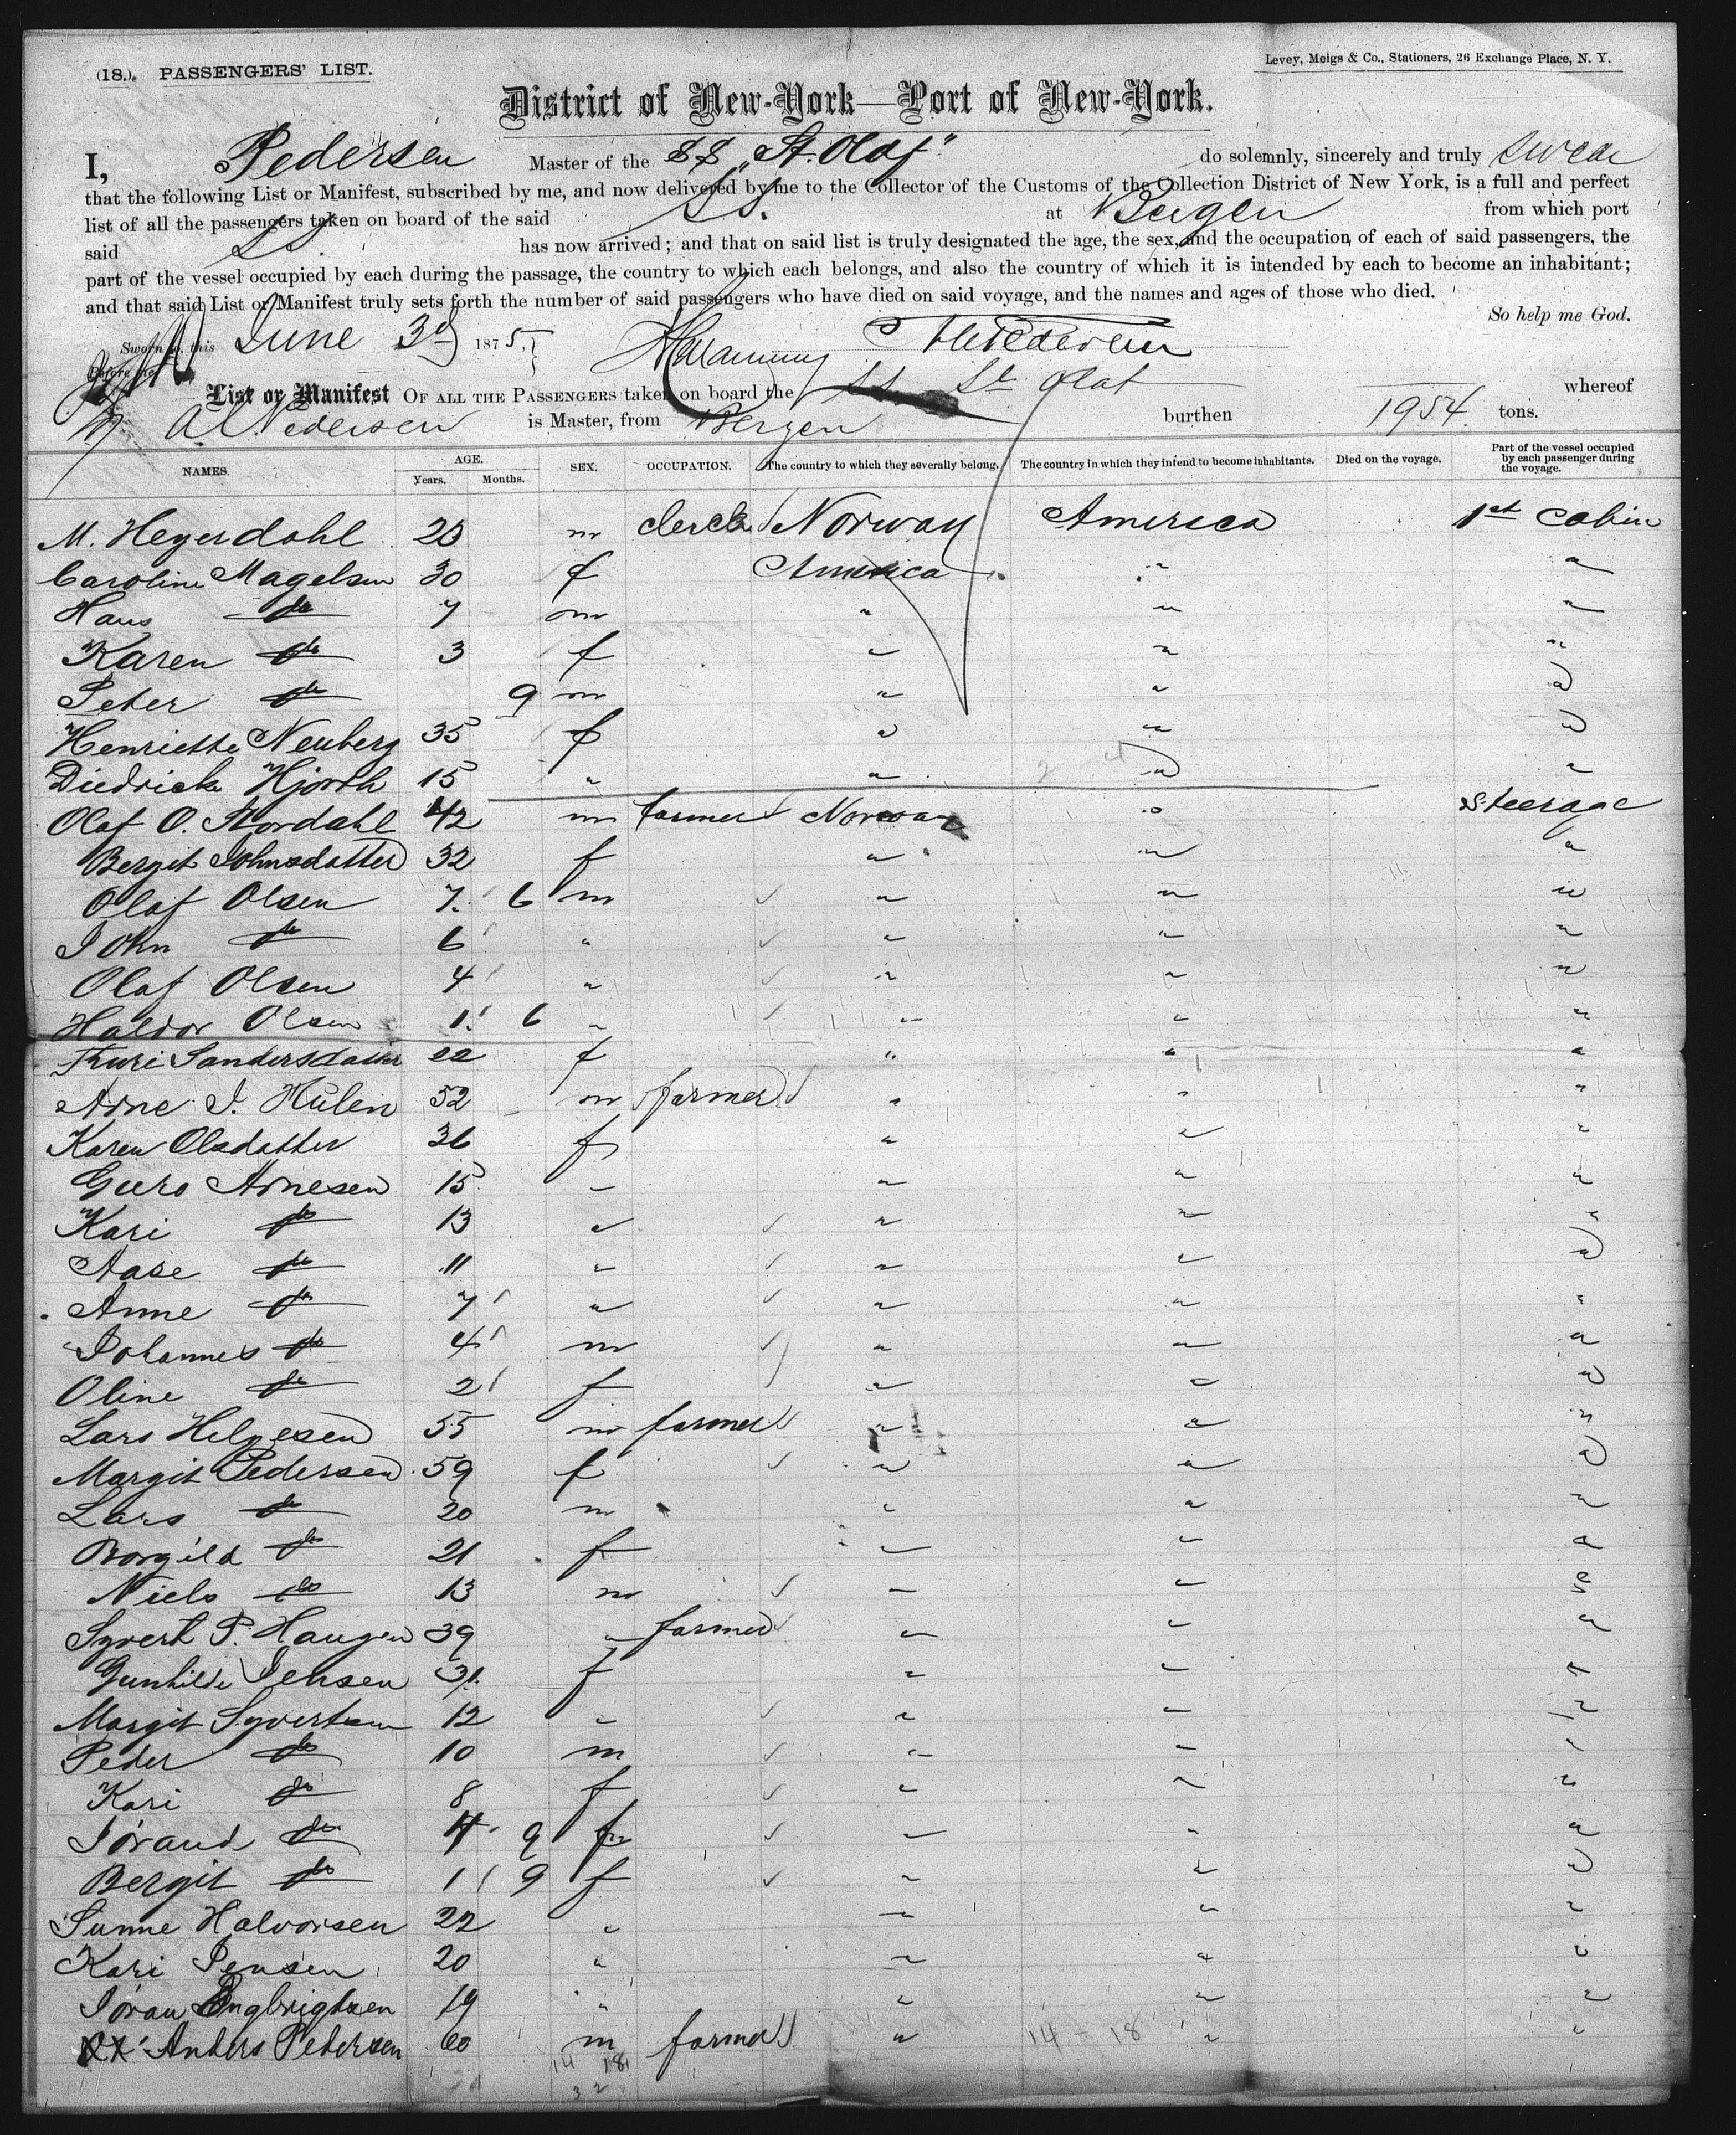 (18.) PASSENGERS' LIST.
Levey, Meigs & Co., Stationers, 26 Exchange Place, N. Y.
District of New-York—Port of New-York.
I, Pedersen Master of the SS "St. Olaf" do solemnly, sincerely and truly swear
that the following List or Manifest, subscribed by me, and now delivered by me to the Collector of the Customs of the Collection District of New York, is a full and perfect
list of all the passengers taken on board of the said SS. at Bergen from which port
said SS. has now arrived; and that on said list is truly designated the age, the sex, and the occupation of each of said passengers, the
part of the vessel occupied by each during the passage, the country to which each belongs, and also the country of which it is intended by each to become an inhabitant;
and that said List or Manifest truly sets forth the number of said passengers who have died on said voyage, and the names and ages of those who died.
So help me God.
Sworn to this June 3d 1875,
Before me
List or Manifest OF ALL THE PASSENGERS taken on board the SS St. Olaf whereof
Pedersen is Master, from Bergen burthen 1954 tons.
NAMES. AGE. Years. Months. SEX. OCCUPATION. The country to which they severally belong. The country in which they intend to become inhabitants. Died on the voyage. Part of the vessel occupied by each passenger during the voyage.
M. Heyerdahl 20 m clerck Norway America 1st Cabin
Caroline Magelsen 30 f America " "
Hans do 7 m " " "
Karen do 3 f " " "
Peter do 9 m " " "
Henriette Neuberg 35 f " " "
Diedricke Hjorth 15 " " " "
Olaf O. Stordahl 42 m farmer Norway " Steerage
Bergit Johnsdatter 32 f " " "
Olaf Olsen 7 6 m " " "
John do 6 " " " "
Olaf Olsen 4 " " " "
Haldor Olsen 1 6 " " " "
Thuri Sandersdatter 22 f " " "
Arne J. Hulen 52 m farmer " " "
Karen Olsdatter 36 f " " "
Guro Arnesen 15 " " " "
Kari do 13 " " " "
Aase do 11 " " " "
Anne do 7 " " " "
Johannes do 4 m " " "
Oline do 2 f " " "
Lars Helgesen 55 m farmer " " "
Margit Pedersen 59 f " " "
Lars do 20 m " " "
Borgild do 21 f " " "
Niels do 13 m " " "
Syvert P. Haugen 39 " farmer " " "
Gunhilde Jensen 31 f " " "
Margit Syvertsen 12 " " " "
Peder do 10 m " " "
Kari do 8 f " " "
Jorand do 4 9 f " " "
Bergit do 1 9 f " " "
Sunne Halvorsen 22 " " " "
Kari Jensen 20 " " " "
Joran Engbrigtsen 19 " " " "
XX Anders Pedersen 60 m farmer " " "
14 - 18
14 18
3 2